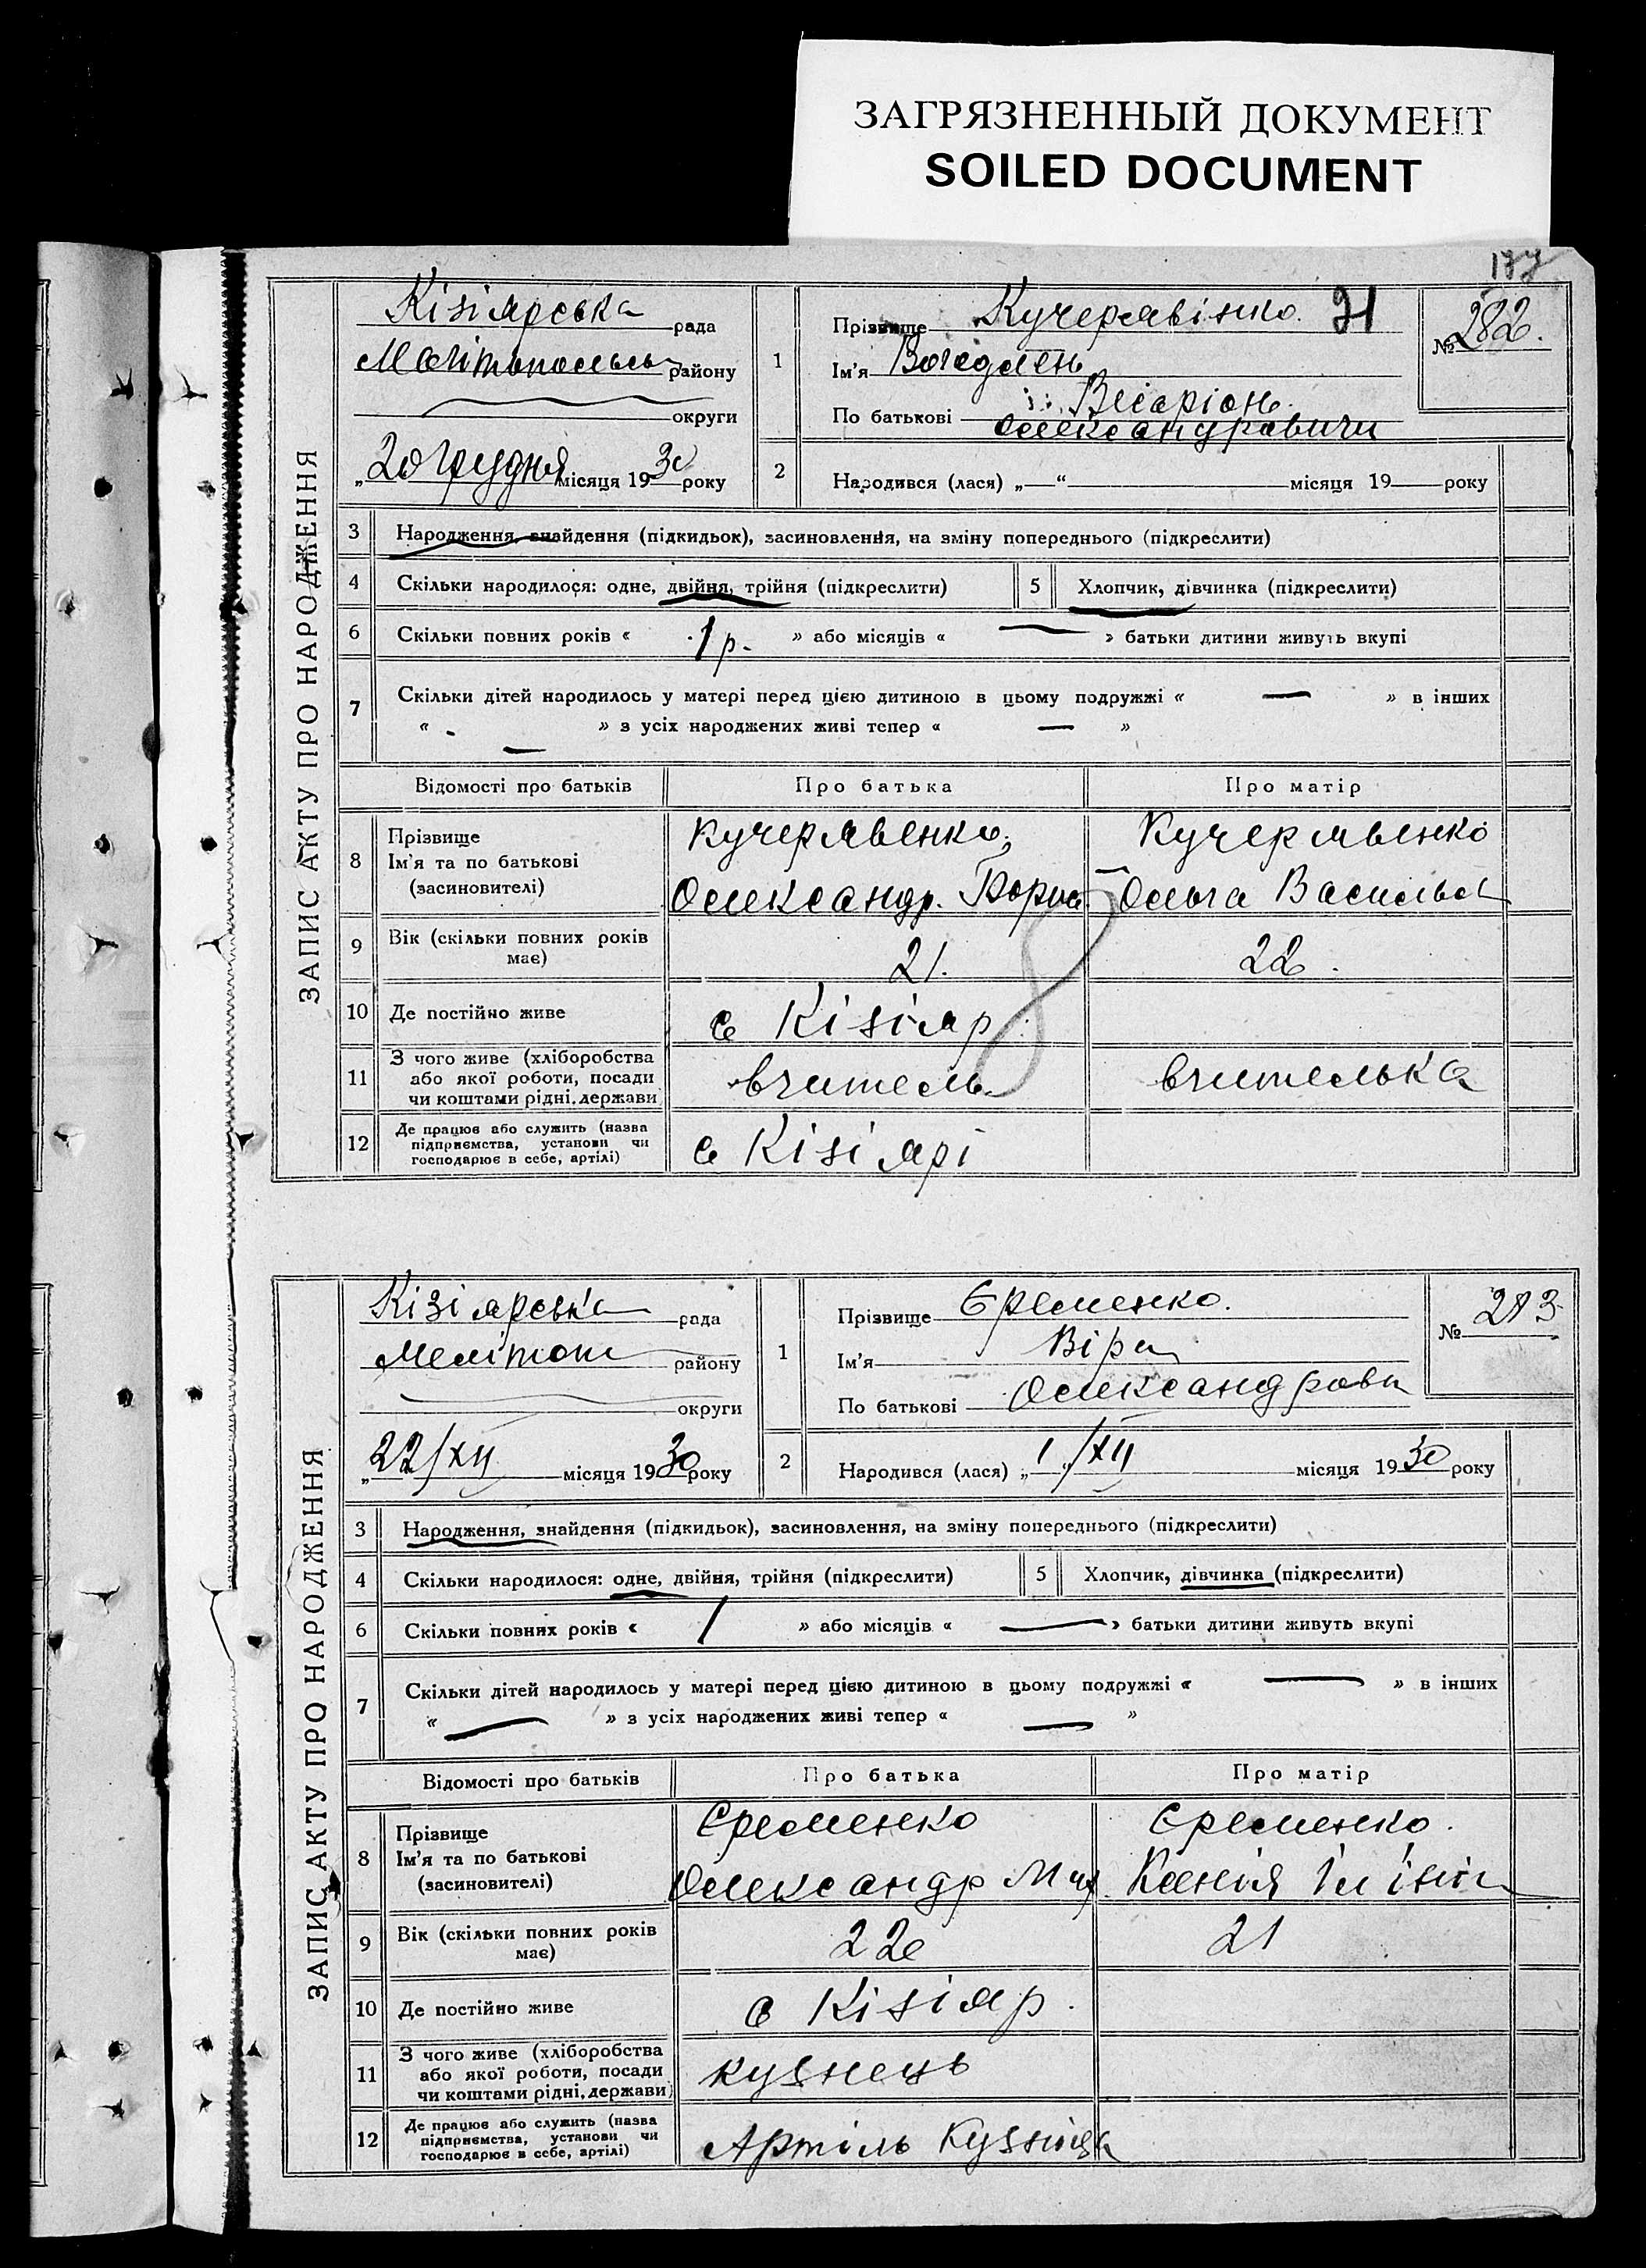 ЗАГРЯЗНЕННЫЙ ДОКУМЕНТ
SOILED DOCUMENT
177
ЗАПИС АКТУ ПРО НАРОДЖЕННЯ
Кізіярська рада
району
округи
„20 грудня місяця 1930 року
1
Прізвище Кучерявінко. 21
Ім'я
Весаріон
По батькові Олександровичи
№ 282.
2
Народився (лася) „—“ місяця 19 року
3 Народження, знайдення (підкидьок), засиновлення, на зміну попереднього (підкреслити)
4 Скільки народилося: одне, двійня, трійня (підкреслити) 5 Хлопчик, дівчинка (підкреслити)
6 Скільки повних років « 1 р. » або місяців « — » батьки дитини живуть вкупі
7 Скільки дітей народилось у матері перед цією дитиною в цьому подружжі « — » в інших
« — » з усіх народжених живі тепер « — »
Відомості про батьків Про батька Про матір
8 Прізвище Кучерявенко Кучерявенко
Ім'я та по батькові
(засиновителі) Олександр. Борис Ольга Васильов
9 Вік (скільки повних років має) 21. 22.
10 Де постійно живе с Кізіяр
11 З чого живе (хліборобства або якої роботи, посади чи коштами рідні, держави вчитель вчителька
12 Де працює або служить (назва підприємства, установи чи господарює в себе, артілі) с Кізіярі
ЗАПИС АКТУ ПРО НАРОДЖЕННЯ
Кізіярська рада
Меліпот району
округи
„22/XII місяця 1930 року
1
Прізвище Єременко.
Ім'я Віра
По батькові Олександровн
№ 283
2
Народився (лася) „1“/XII місяця 1930 року
3 Народження, знайдення (підкидьок), засиновлення, на зміну попереднього (підкреслити)
4 Скільки народилося: одне, двійня, трійня (підкреслити) 5 Хлопчик, дівчинка (підкреслити)
6 Скільки повних років « 1 » або місяців « — » батьки дитини живуть вкупі
7 Скільки дітей народилось у матері перед цією дитиною в цьому подружжі « — » в інших
« — » з усіх народжених живі тепер « — »
Відомості про батьків Про батька Про матір
8 Прізвище Єременко Єременко.
Ім'я та по батькові
(засиновителі) Олександр Мих Ксенія
9 Вік (скільки повних років має) 22 21
10 Де постійно живе с Кізіяр.
11 З чого живе (хліборобства або якої роботи, посади чи коштами рідні, держави) кузнець
12 Де працює або служить (назва підприємства, установи чи господарює в себе, артілі) Артіль